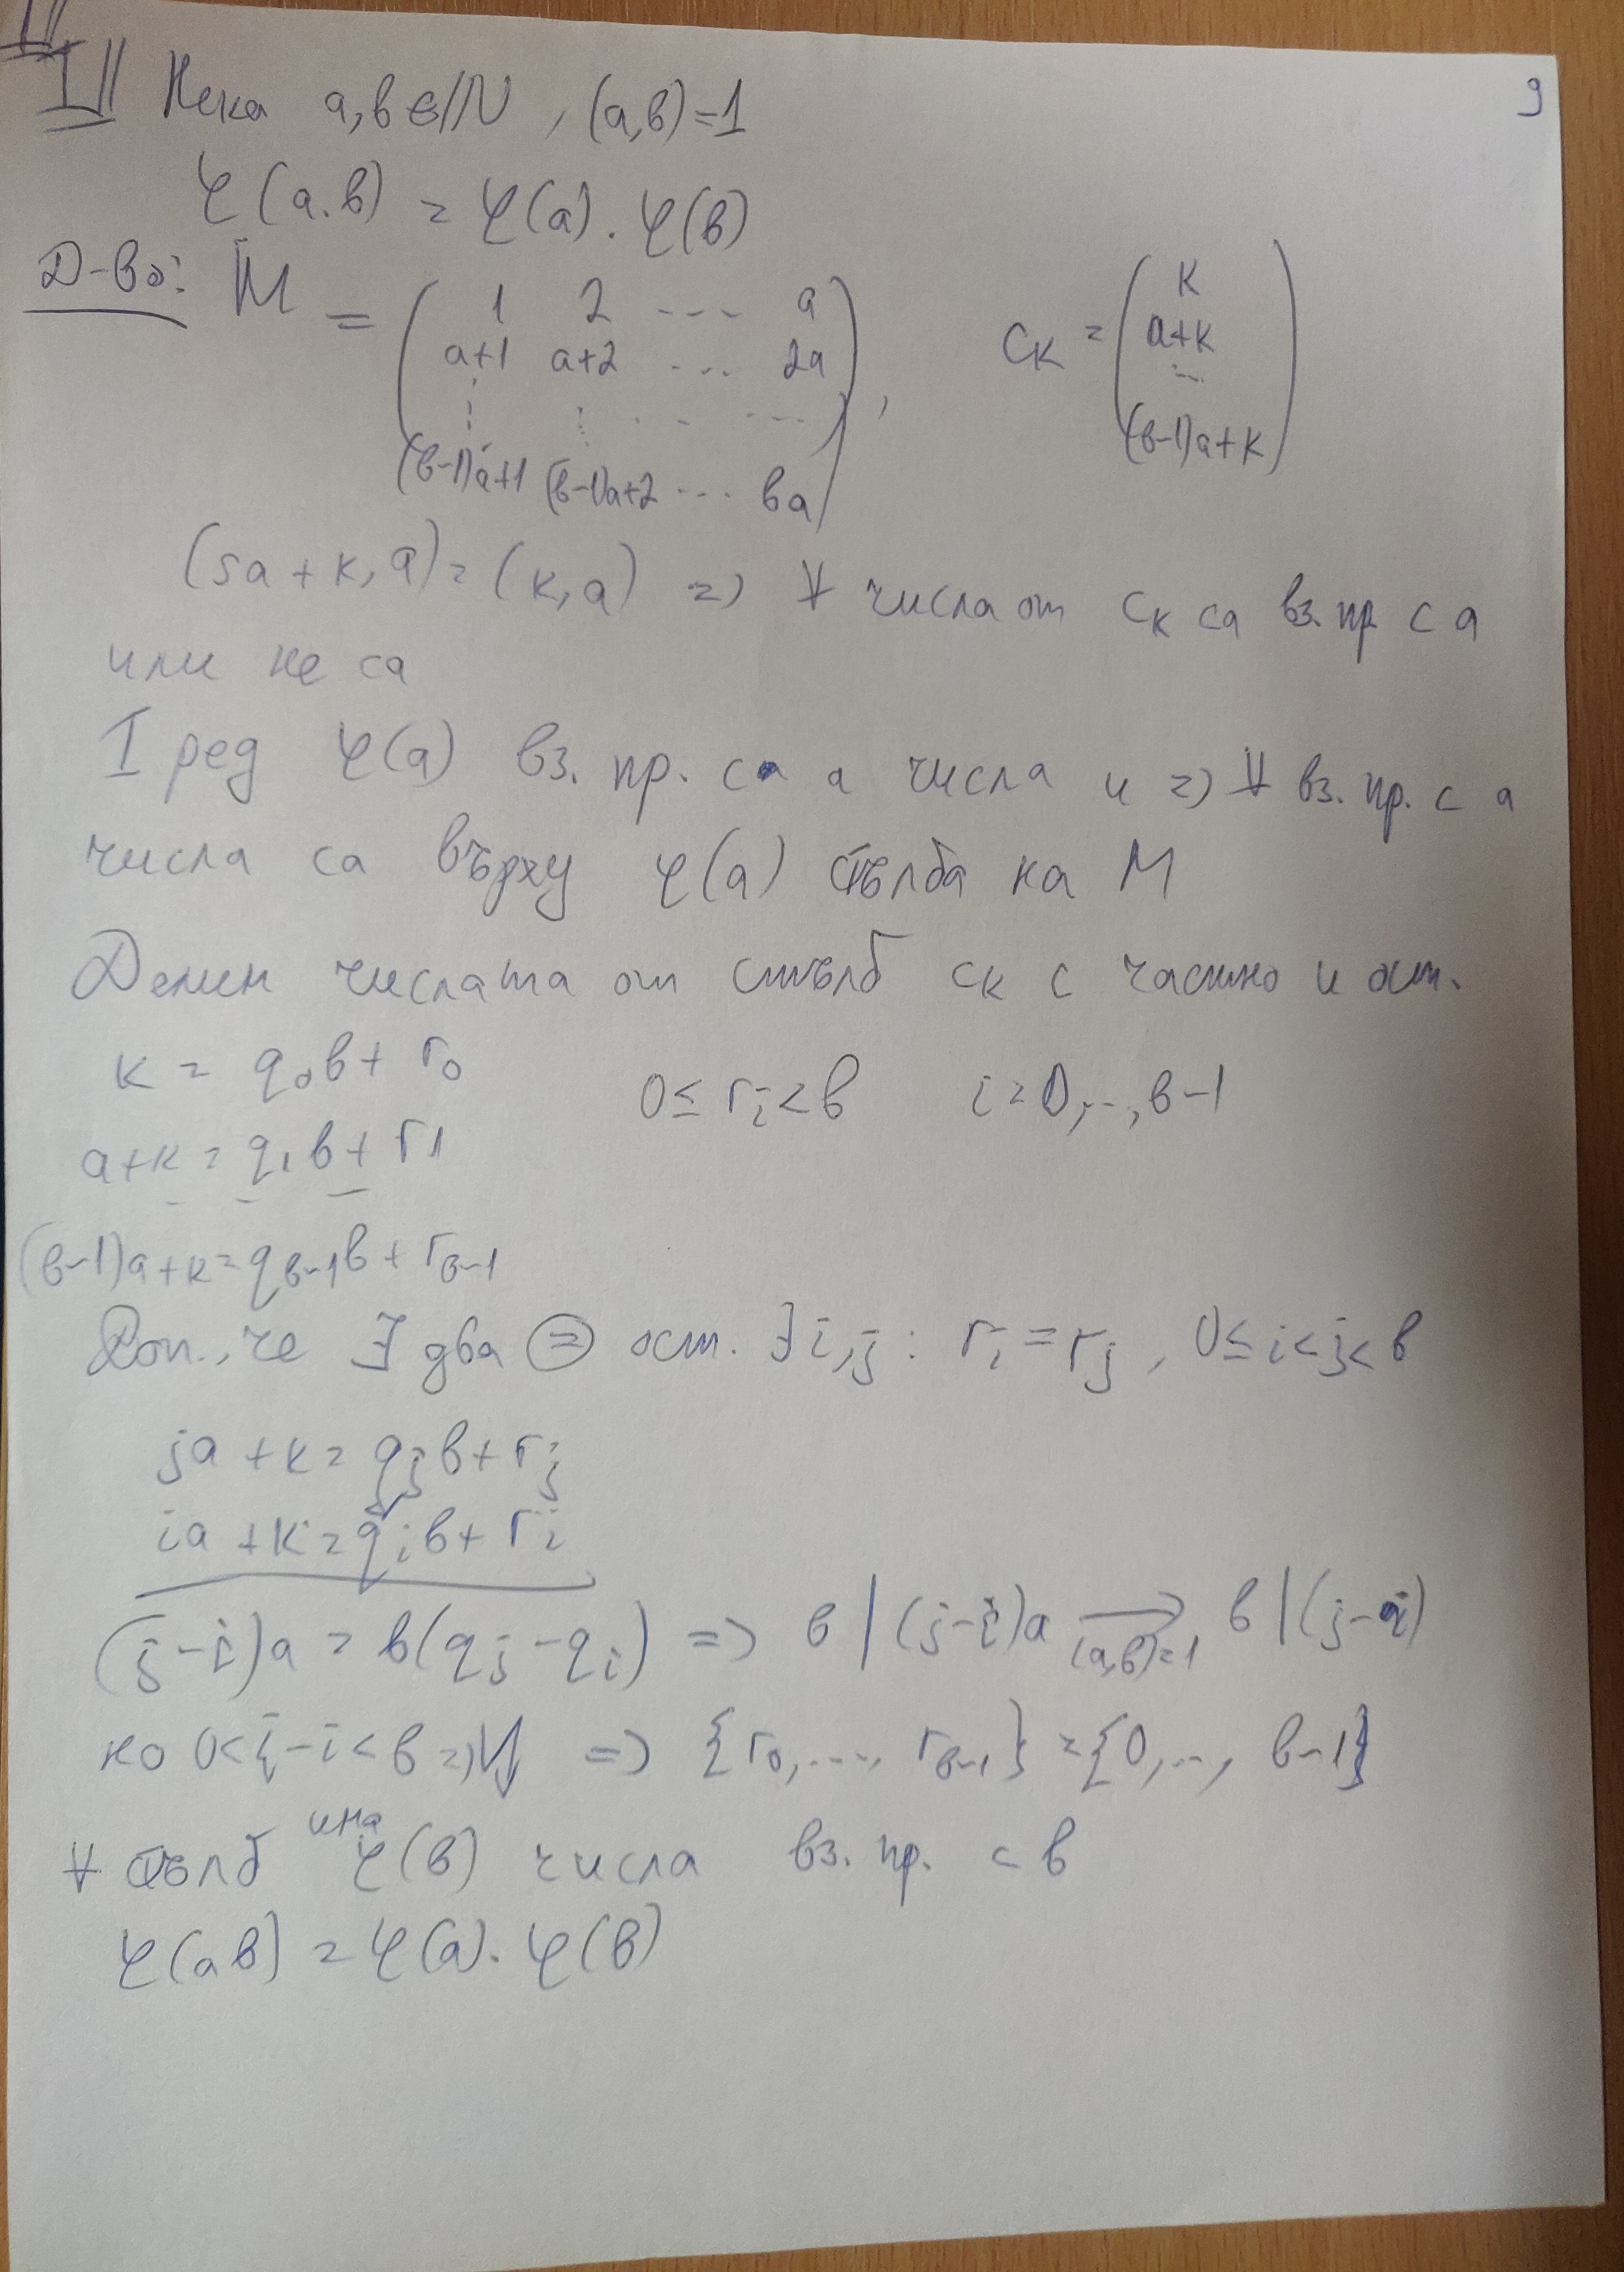 9
II Нека a,b ∈ ℕ, (a,b)=1
φ(a.b) = φ(a).φ(b)
Д-во: M = ( 1 2 ... a , c_k = ( k
a+1 a+2 ... 2a a+k
⋮ ⋮ ... ... ...
(b-1)a+1 (b-1)a+2 ... ba ) (b-1)a+k )
(sa+k, a) = (k,a) => ∀ числа от c_k са вз. пр с a
или не са
I ред φ(a) вз. пр. с a числа и => ∀ вз. пр. с a
числа са върху φ(a) стълба на M
Делим числата от стълб c_k с частно и ост.
k = q₀b + r₀
0 ≤ r_i < b i = 0,..., b-1
a+k = q₁b + r₁
(b-1)a+k = q_{b-1}b + r_{b-1}
Доп., че ∃ два ⊜ ост. ∃ i,j : r_i = r_j, 0 ≤ i < j < b
ja + k = q_j b + r_j
ia + k = q_i b + r_i
(j-i)a = b(q_j - q_i) => b | (j-i)a → (a,b)=1 b | (j-i)
но 0 < j-i < b => ↯ => {r₀, ..., r_{b-1}} = {0, .., b-1}
∀ стълб има φ(b) числа вз. пр. с b
φ(ab) = φ(a).φ(b)